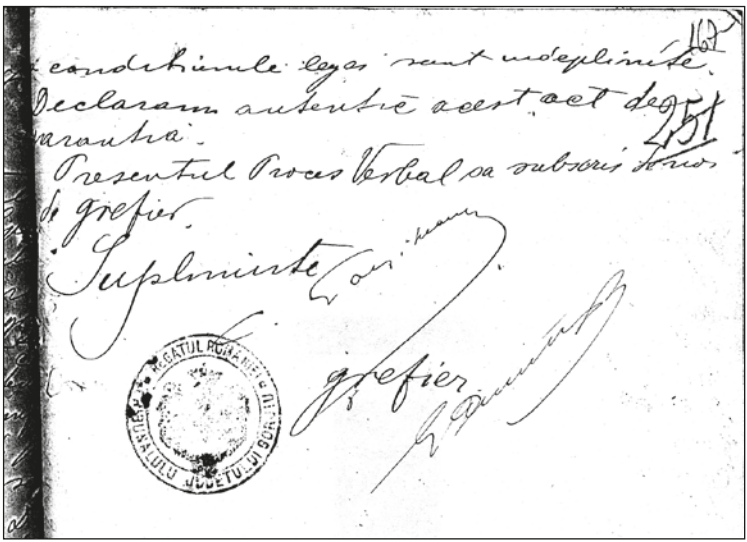 167
condițiunile legei sunt indeplinite.
Declaram autentic acest act de
251
garantia.
Presentul Proces Verbal sa subscris de noi
de grefier.
Supleminte
grefier
REGATUL ROMÂNIEI
TRIBUNALULU JUDEȚULUI GORJ